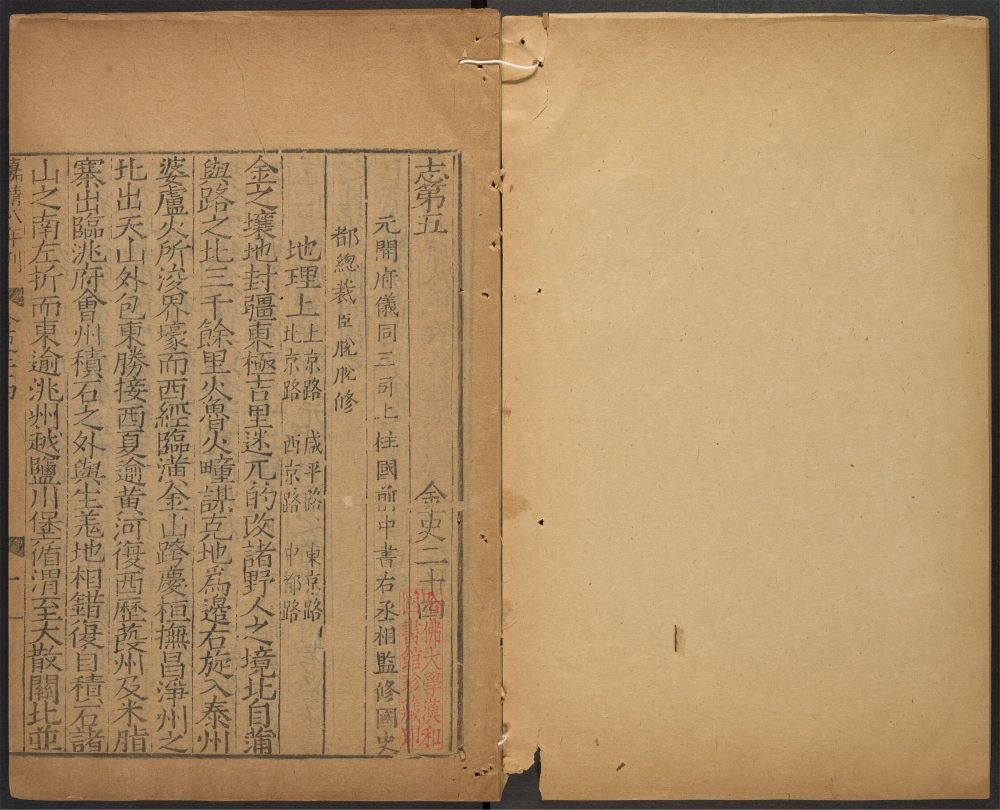 志第五 金史二十四
元開府儀同三司上柱國前中書右丞相監修國史
都總裁臣脫脫修
地理上 上京路 咸平路 東京路
北京路 西京路 中都路
金之壤地封疆東極吉里迷兀的改諸野人之境北自蒲
與路之北三千餘里火魯火疃謀克地爲邊右旋入泰州
婆盧火所浚界壕而西經臨潢金山跨慶桓撫昌淨州之
北出天山外包東勝接西夏逾黃河復西歷葭州及米脂
寨出臨洮府會州積石之外與生羗地相錯復自積石諸
山之南左折而東逾洮州越鹽川堡循渭至大散關北並
嘉靖八年刊
一
哈佛大學漢和
圖書館珍藏印